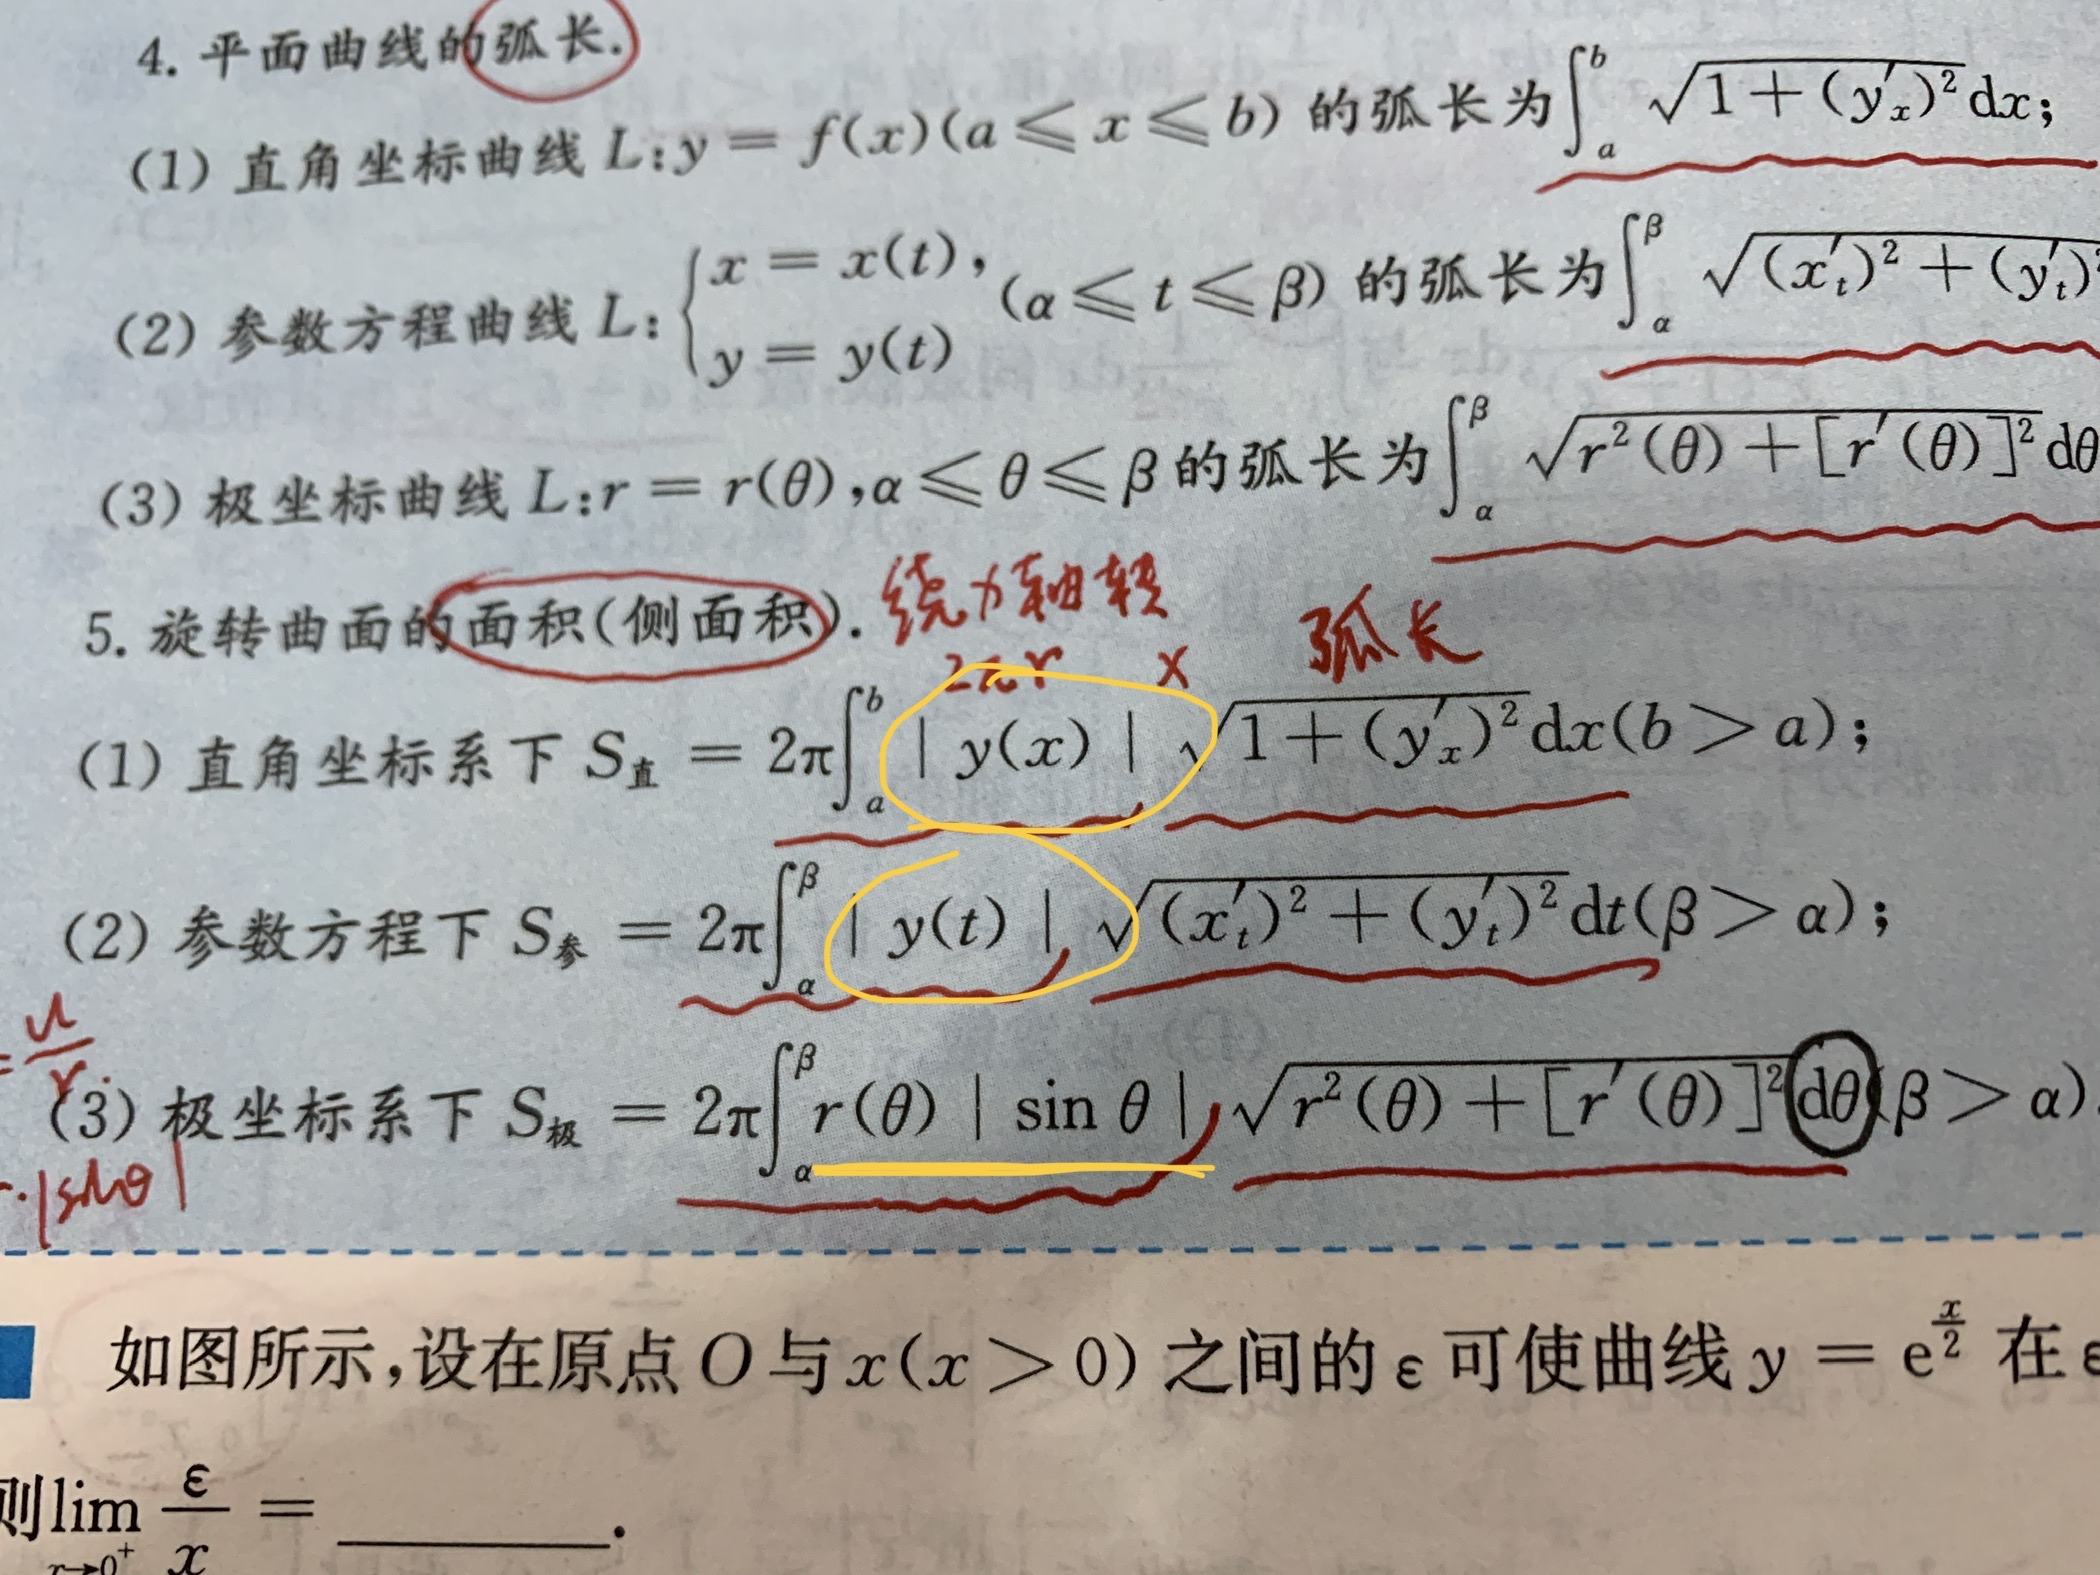 4. 平面曲线的弧长.
(1) 直角坐标曲线 L:y = f(x)(a ⩽ x ⩽ b) 的弧长为∫_a^b √(1+(y′_x)²)dx;
(2) 参数方程曲线 L:{x = x(t), y = y(t) (α ⩽ t ⩽ β) 的弧长为∫_α^β √((x′_t)²+(y′_t)²
(3) 极坐标曲线 L:r = r(θ),α ⩽ θ ⩽ β 的弧长为∫_α^β √(r²(θ)+[r′(θ)]²)dθ
5. 旋转曲面的面积(侧面积).
2πr × 弧长
(1) 直角坐标系下 S直 = 2π∫_a^b | y(x) | √(1+(y′_x)²)dx(b > a);
(2) 参数方程下 S参 = 2π∫_α^β | y(t) | √((x′_t)²+(y′_t)²)dt(β > α);
(3) 极坐标系下 S极 = 2π∫_α^β r(θ) | sin θ | √(r²(θ)+[r′(θ)]²)dθ(β > α)
·|sinθ|
如图所示,设在原点 O 与 x(x > 0) 之间的 ε 可使曲线 y = e^(x/2) 在 ε
则 lim_(x→0⁺) ε/x = ________.